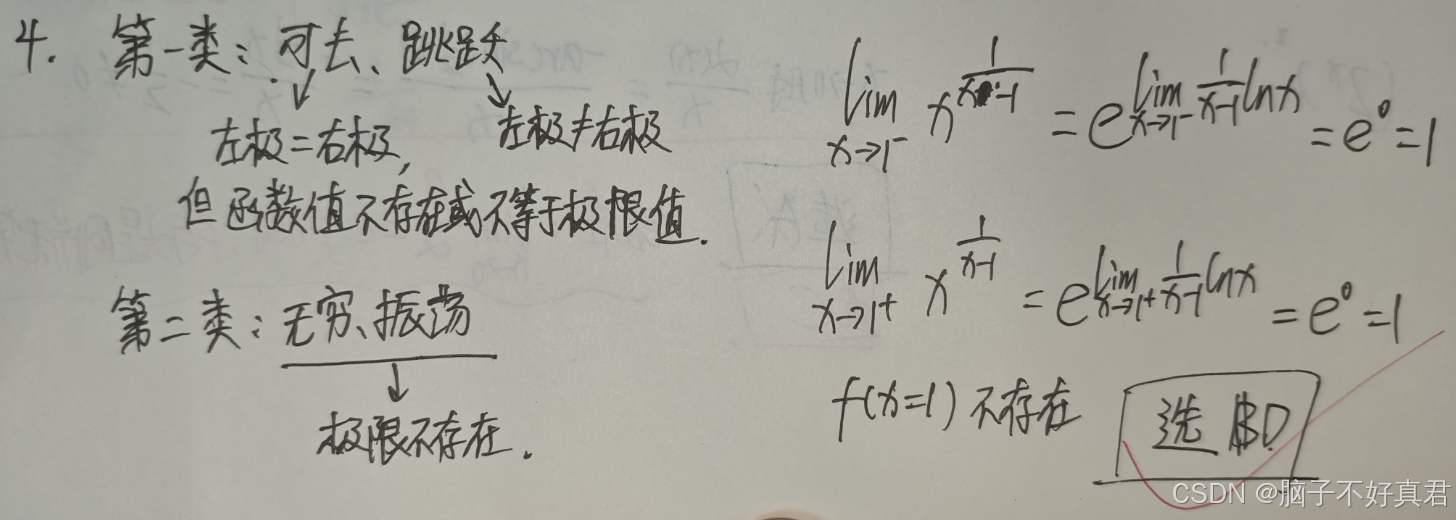 4. 第一类：可去、跳跃
左极=右极，
左极≠右极
但函数值不存在或不等于极限值.
第二类：无穷、振荡
极限不存在.
lim x→1⁻ x^(1/(x-1)) = e^(lim x→1⁻ 1/(x-1) lnx) = e⁰ = 1
lim x→1⁺ x^(1/(x-1)) = e^(lim x→1⁺ 1/(x-1) lnx) = e⁰ = 1
f(x=1) 不存在
选 D
CSDN @脑子不好真君